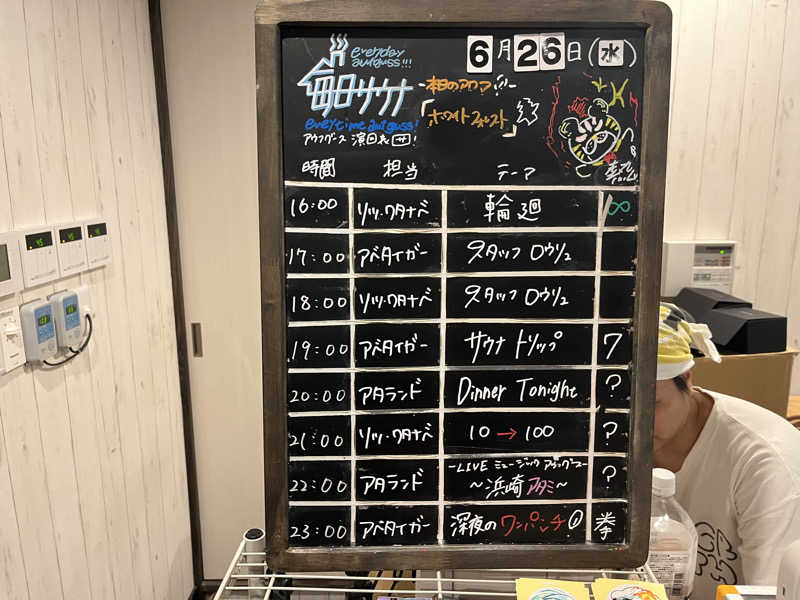 everyday
aufguss!!!
毎日サウナ
everytime aufguss!
6月26日(水)
本日のアウフ
「ホワイトフォレスト」
時間 担当 テーマ
16:00 リッツ・ワタナベ 輪廻 ∞
17:00 アベタイガー スタッフロウリュ
18:00 リッツ・ワタナベ スタッフロウリュ
19:00 アベタイガー サウナトリップ 7
20:00 アタランド Dinner Tonight ?
21:00 リッツ・ワタナベ 10→100 ?
22:00 アタランド -LIVE ミュージック アウフグース- ?
~浜崎アタミ~
23:00 アベタイガー 深夜のワンパンチ 拳